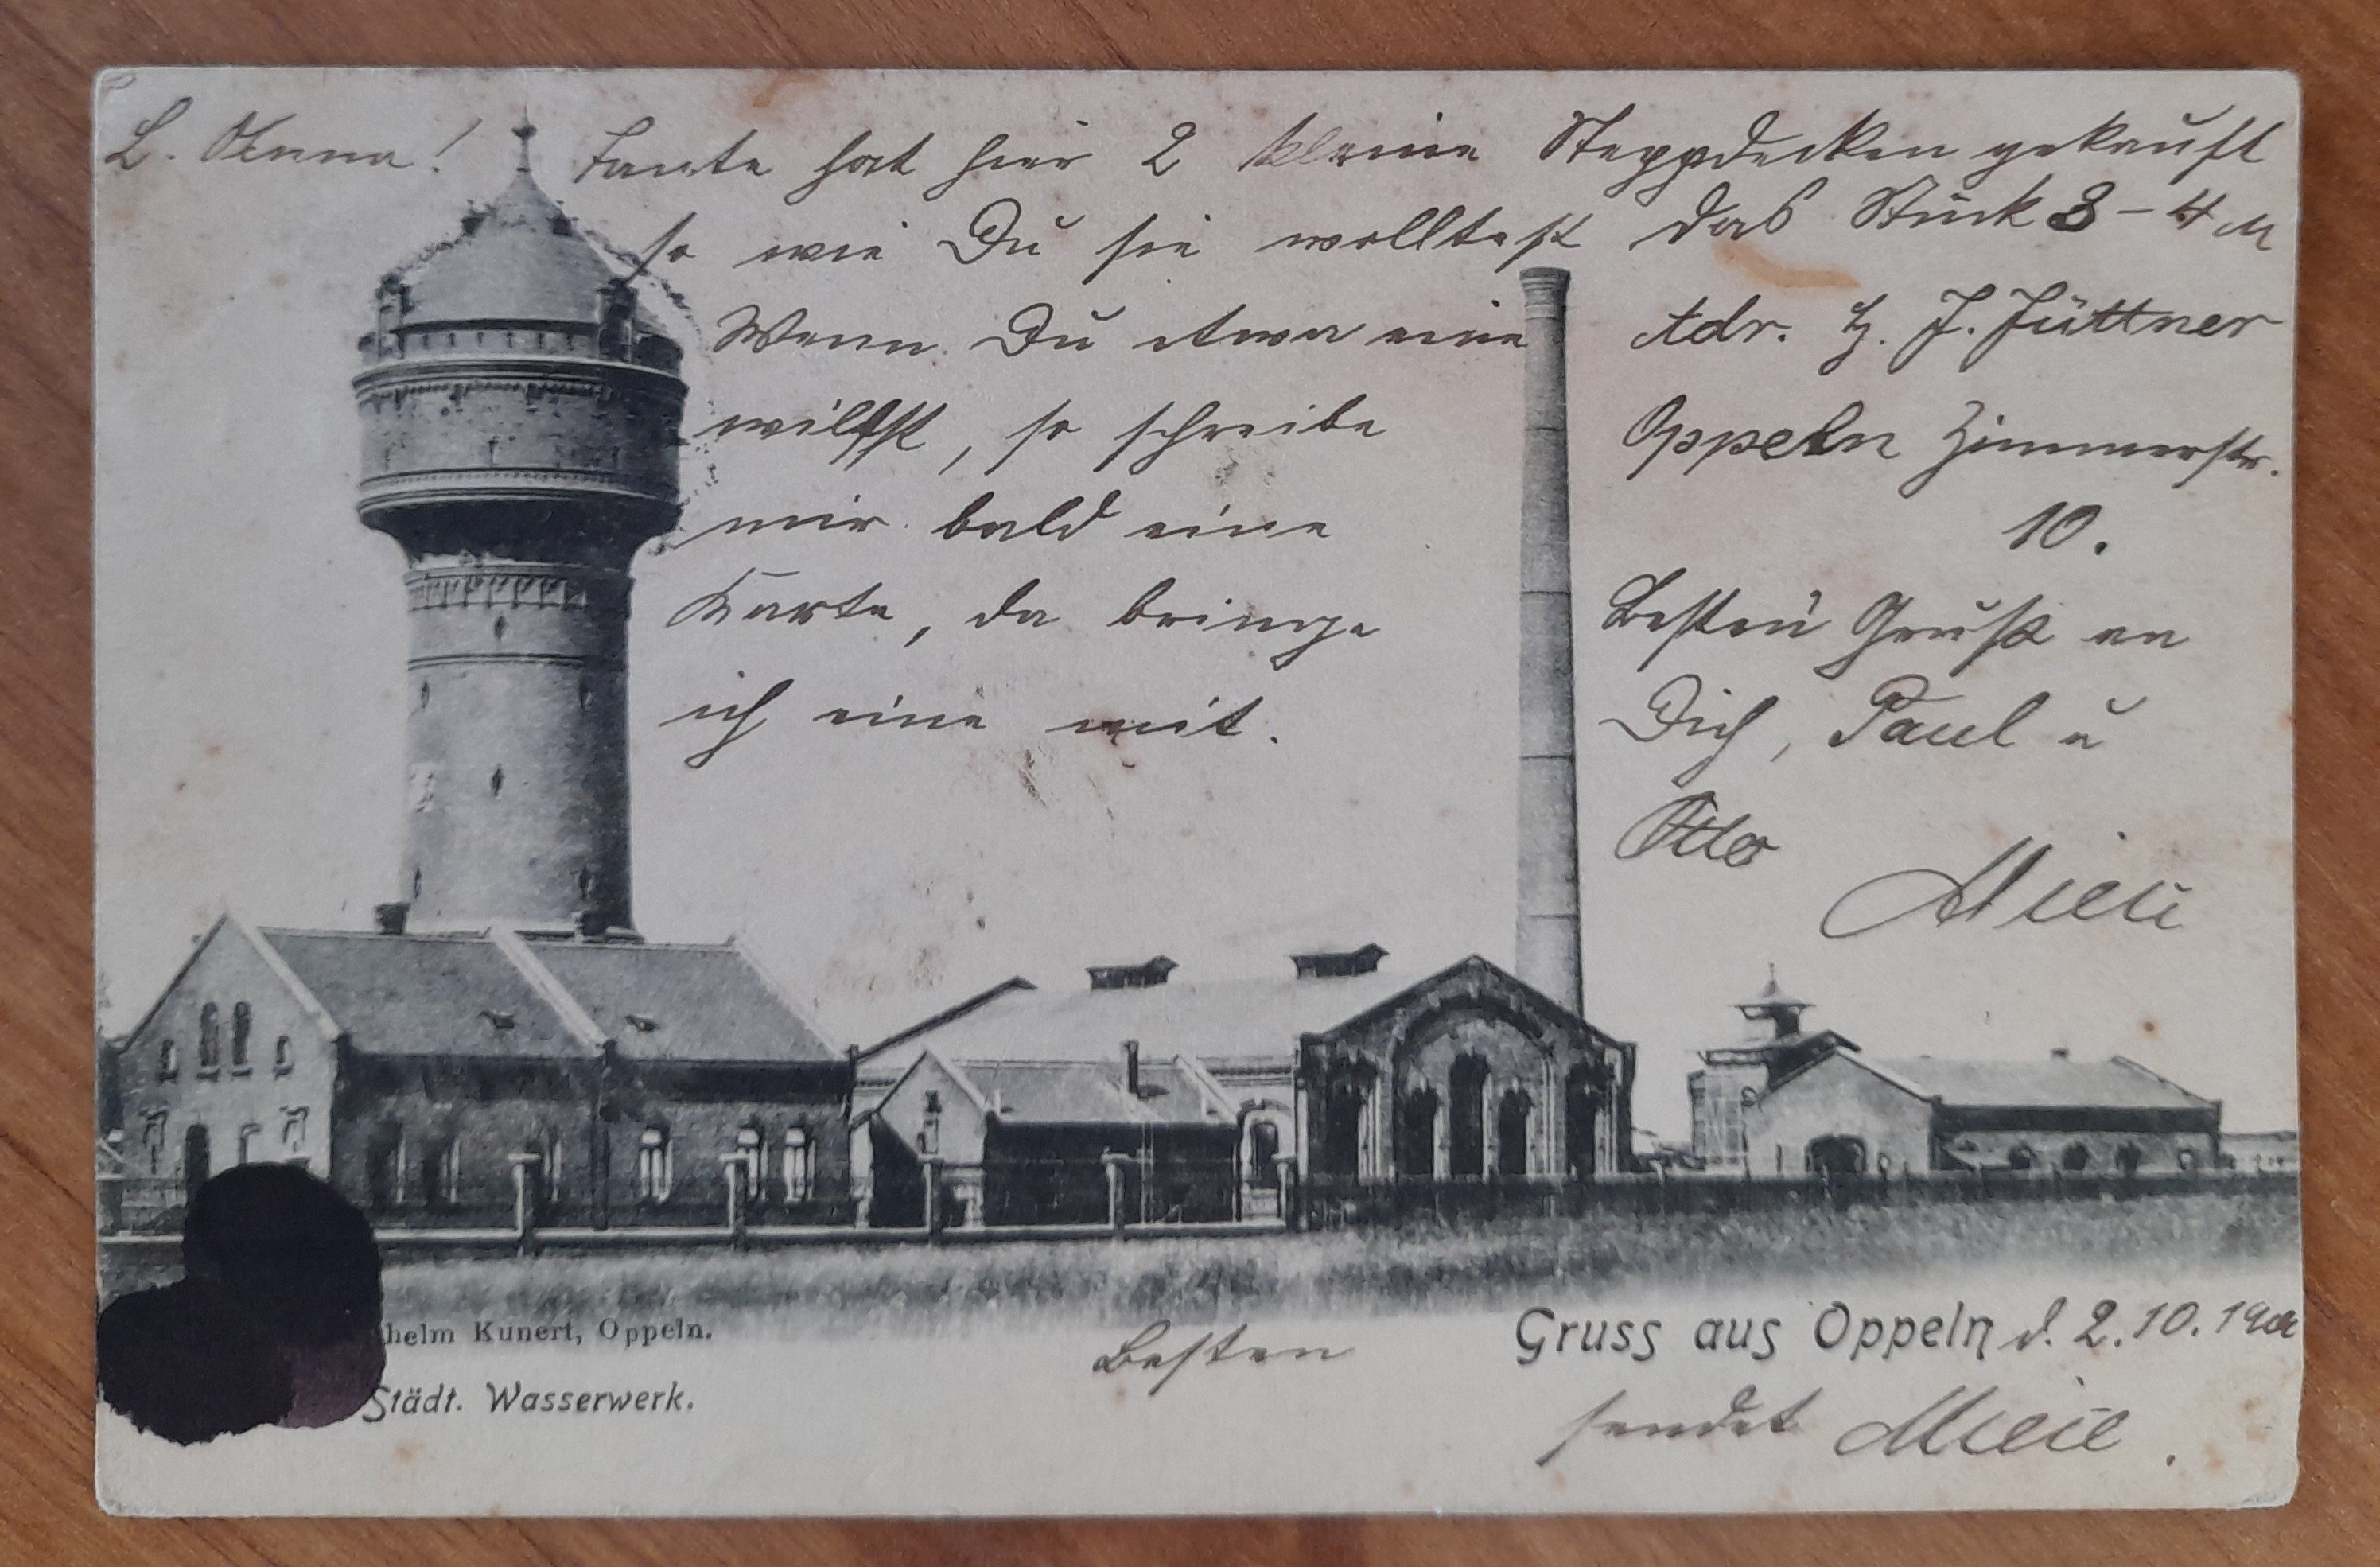 L. Anna! Tante hat hier 2 kleine Steppdecken gekauft
so wie Du sie wolltest das Stück 3 – 4 M
Wenn Du etwa eine
willst, so schreibe
mir bald eine
Karte, da bringe
ich eine mit.
Adr. H. J. Jüttner
Oppeln Zimmerstr.
10.
Besten Gruß an
Dich, Paul u
Otto
helm Kunert, Oppeln.
Städt. Wasserwerk.
Besten
Gruss aus Oppeln d. 2.10.
sendet